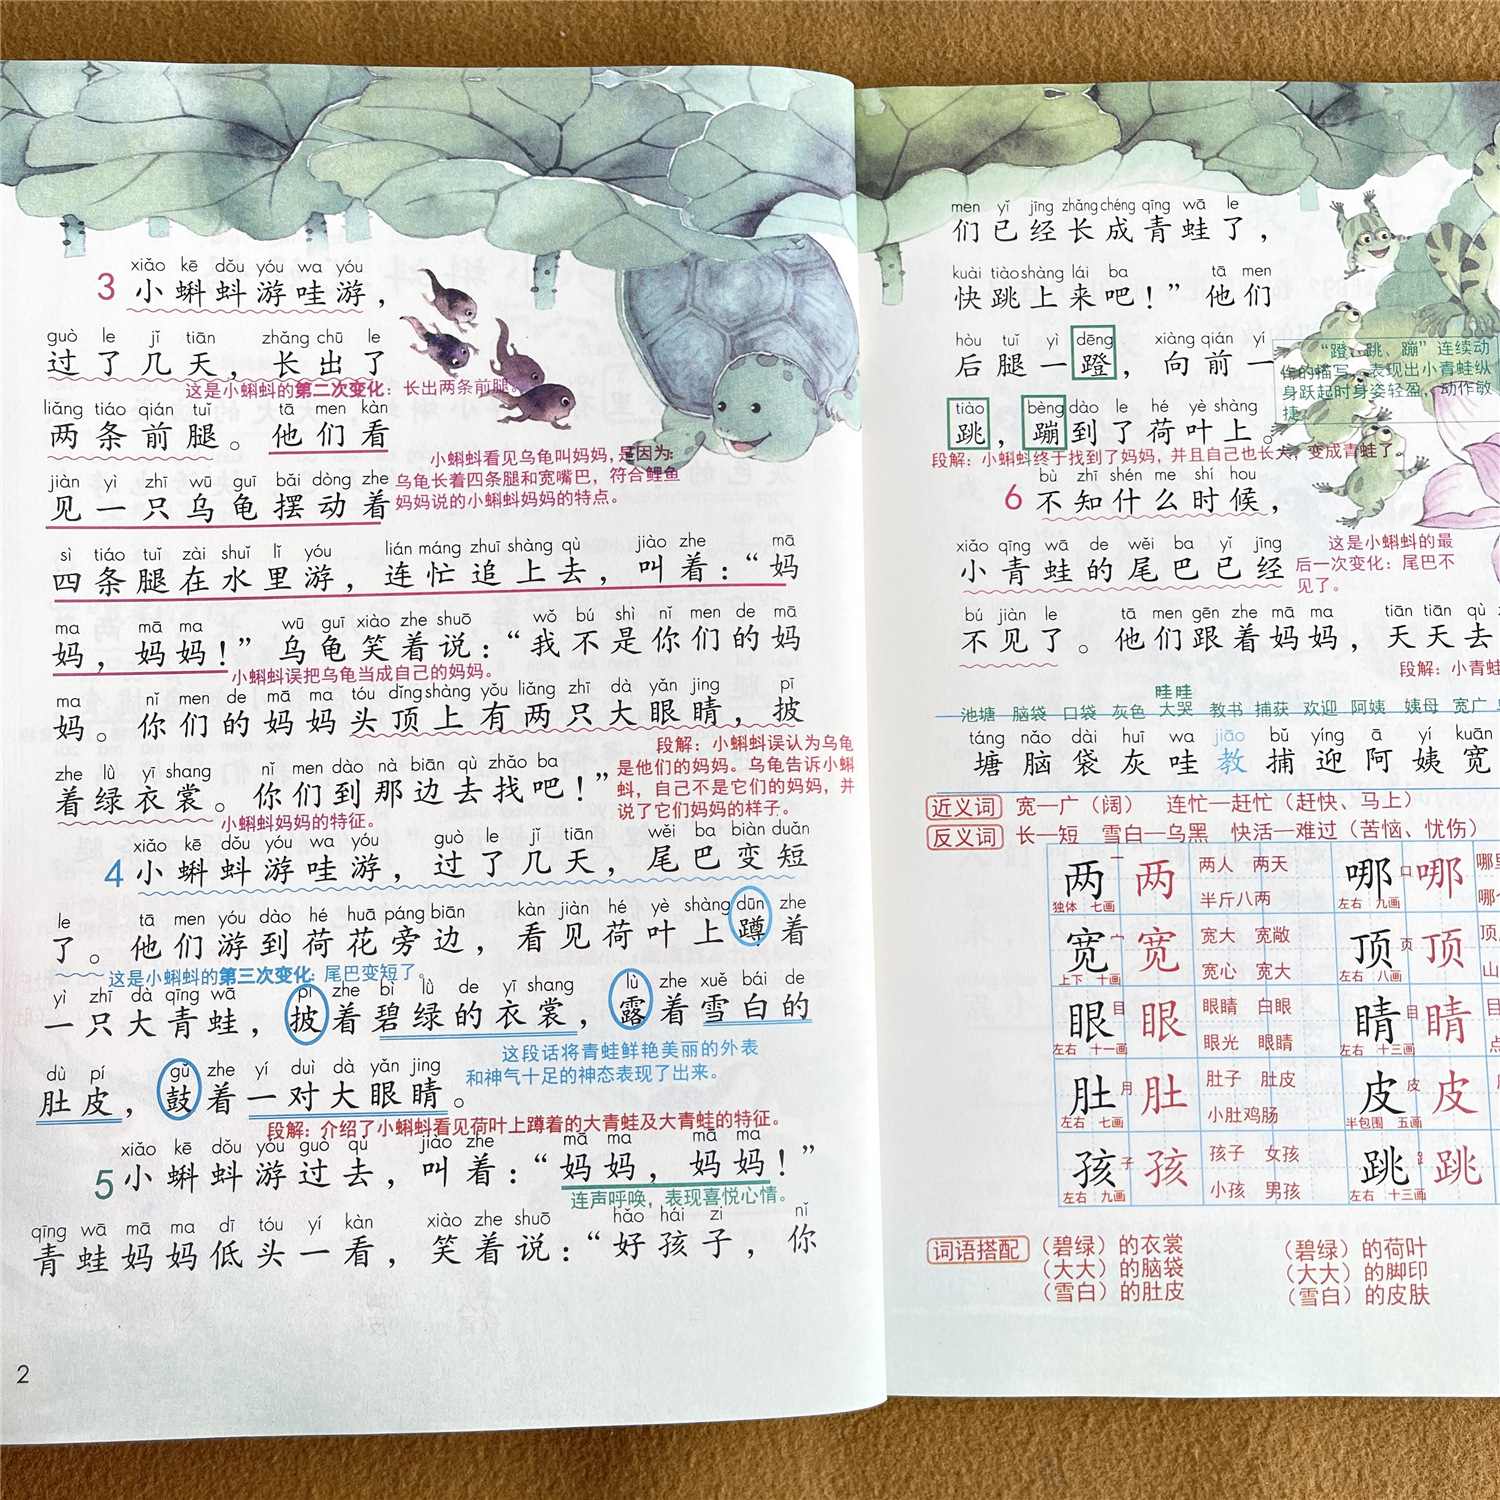 xiǎo kē dǒu yóu wa yóu
3 小蝌蚪游哇游，
guò le jǐ tiān zhǎng chū le
过了几天，长出了
这是小蝌蚪的第二次变化：长出两条前腿。
liǎng tiáo qián tuǐ tā men kàn
两条前腿。他们看
小蝌蚪看见乌龟叫妈妈，是因为：
乌龟长着四条腿和宽嘴巴，符合鲤鱼
妈妈说的小蝌蚪妈妈的特点。
jiàn yì zhī wū guī bǎi dòng zhe
见一只乌龟摆动着
sì tiáo tuǐ zài shuǐ lǐ yóu lián máng zhuī shàng qù jiào zhe mā
四条腿在水里游，连忙追上去，叫着：“妈
ma mā ma wū guī xiào zhe shuō wǒ bú shì nǐ men de mā
妈，妈妈！”乌龟笑着说：“我不是你们的妈
小蝌蚪误把乌龟当成自己的妈妈。
ma nǐ men de mā ma tóu dǐng shàng yǒu liǎng zhī dà yǎn jing pī
妈。你们的妈妈头顶上有两只大眼睛，披
段解：小蝌蚪误认为乌龟
是他们的妈妈。乌龟告诉小蝌
蚪，自己不是它们的妈妈，并
说了它们妈妈的样子。
zhe lǜ yī shang nǐ men dào nà biān qù zhǎo ba
着绿衣裳。你们到那边去找吧！”
小蝌蚪妈妈的特征。
xiǎo kē dǒu yóu wa yóu guò le jǐ tiān wěi ba biàn duǎn
4 小蝌蚪游哇游，过了几天，尾巴变短
le tā men yóu dào hé huā páng biān kàn jiàn hé yè shàng dūn zhe
了。他们游到荷花旁边，看见荷叶上蹲着
这是小蝌蚪的第三次变化：尾巴变短了。
yì zhī dà qīng wā pī zhe bì lǜ de yī shang lù zhe xuě bái de
一只大青蛙，披着碧绿的衣裳，露着雪白的
这段话将青蛙鲜艳美丽的外表
和神气十足的神态表现了出来。
dù pí gǔ zhe yí duì dà yǎn jing
肚皮，鼓着一对大眼睛。
段解：介绍了小蝌蚪看见荷叶上蹲着的大青蛙及大青蛙的特征。
xiǎo kē dǒu yóu guò qù jiào zhe mā ma mā ma
5 小蝌蚪游过去，叫着：“妈妈，妈妈！”
连声呼唤，表现喜悦心情。
qīng wā mā ma dī tóu yí kàn xiào zhe shuō hǎo hái zi nǐ
青蛙妈妈低头一看，笑着说：“好孩子，你
2
men yǐ jīng zhǎng chéng qīng wā le
们已经长成青蛙了，
kuài tiào shàng lái ba tā men
快跳上来吧！”他们
hòu tuǐ yì dēng xiàng qián yí
后腿一蹬，向前一
“蹬、跳、蹦”连续动
作的描写，表现出小青蛙纵
身跃起时身姿轻盈，动作敏
捷。
tiào bèng dào le hé yè shàng
跳，蹦到了荷叶上。
段解：小蝌蚪终于找到了妈妈，并且自己也长大，变成青蛙了。
bù zhī shén me shí hou
6 不知什么时候，
xiǎo qīng wā de wěi ba yǐ jīng
小青蛙的尾巴已经
这是小蝌蚪的最
后一次变化：尾巴不
见了。
bú jiàn le tā men gēn zhe mā ma tiān tiān qù
不见了。他们跟着妈妈，天天去
段解：小青蛙
池塘 脑袋 口袋 灰色 哇哇大哭 教书 捕获 欢迎 阿姨 姨母 宽广
táng nǎo dài huī wa jiāo bǔ yíng ā yí kuān
塘脑袋灰哇教捕迎阿姨宽
近义词 宽—广（阔） 连忙—赶忙（赶快、马上）
反义词 长—短 雪白—乌黑 快活—难过（苦恼、忧伤）
两 一 两 两人 两天 哪 口 哪 哪里
独体 七画 半斤八两 左右 九画 哪个
宽 宀 宽 宽大 宽敞 顶 页 顶 顶
上下 十画 宽心 宽大 左右 八画 山
眼 目 眼 眼睛 白眼 睛 目 睛 目
左右 十一画 眼光 眼睛 左右 十三画 点
肚 月 肚 肚子 肚皮 皮 皮 皮
左右 七画 小肚鸡肠 半包围 五画
孩 子 孩 孩子 女孩 跳 跳
左右 九画 小孩 男孩 左右 十三画
词语搭配 （碧绿）的衣裳 （碧绿）的荷叶
（大大）的脑袋 （大大）的脚印
（雪白）的肚皮 （雪白）的皮肤